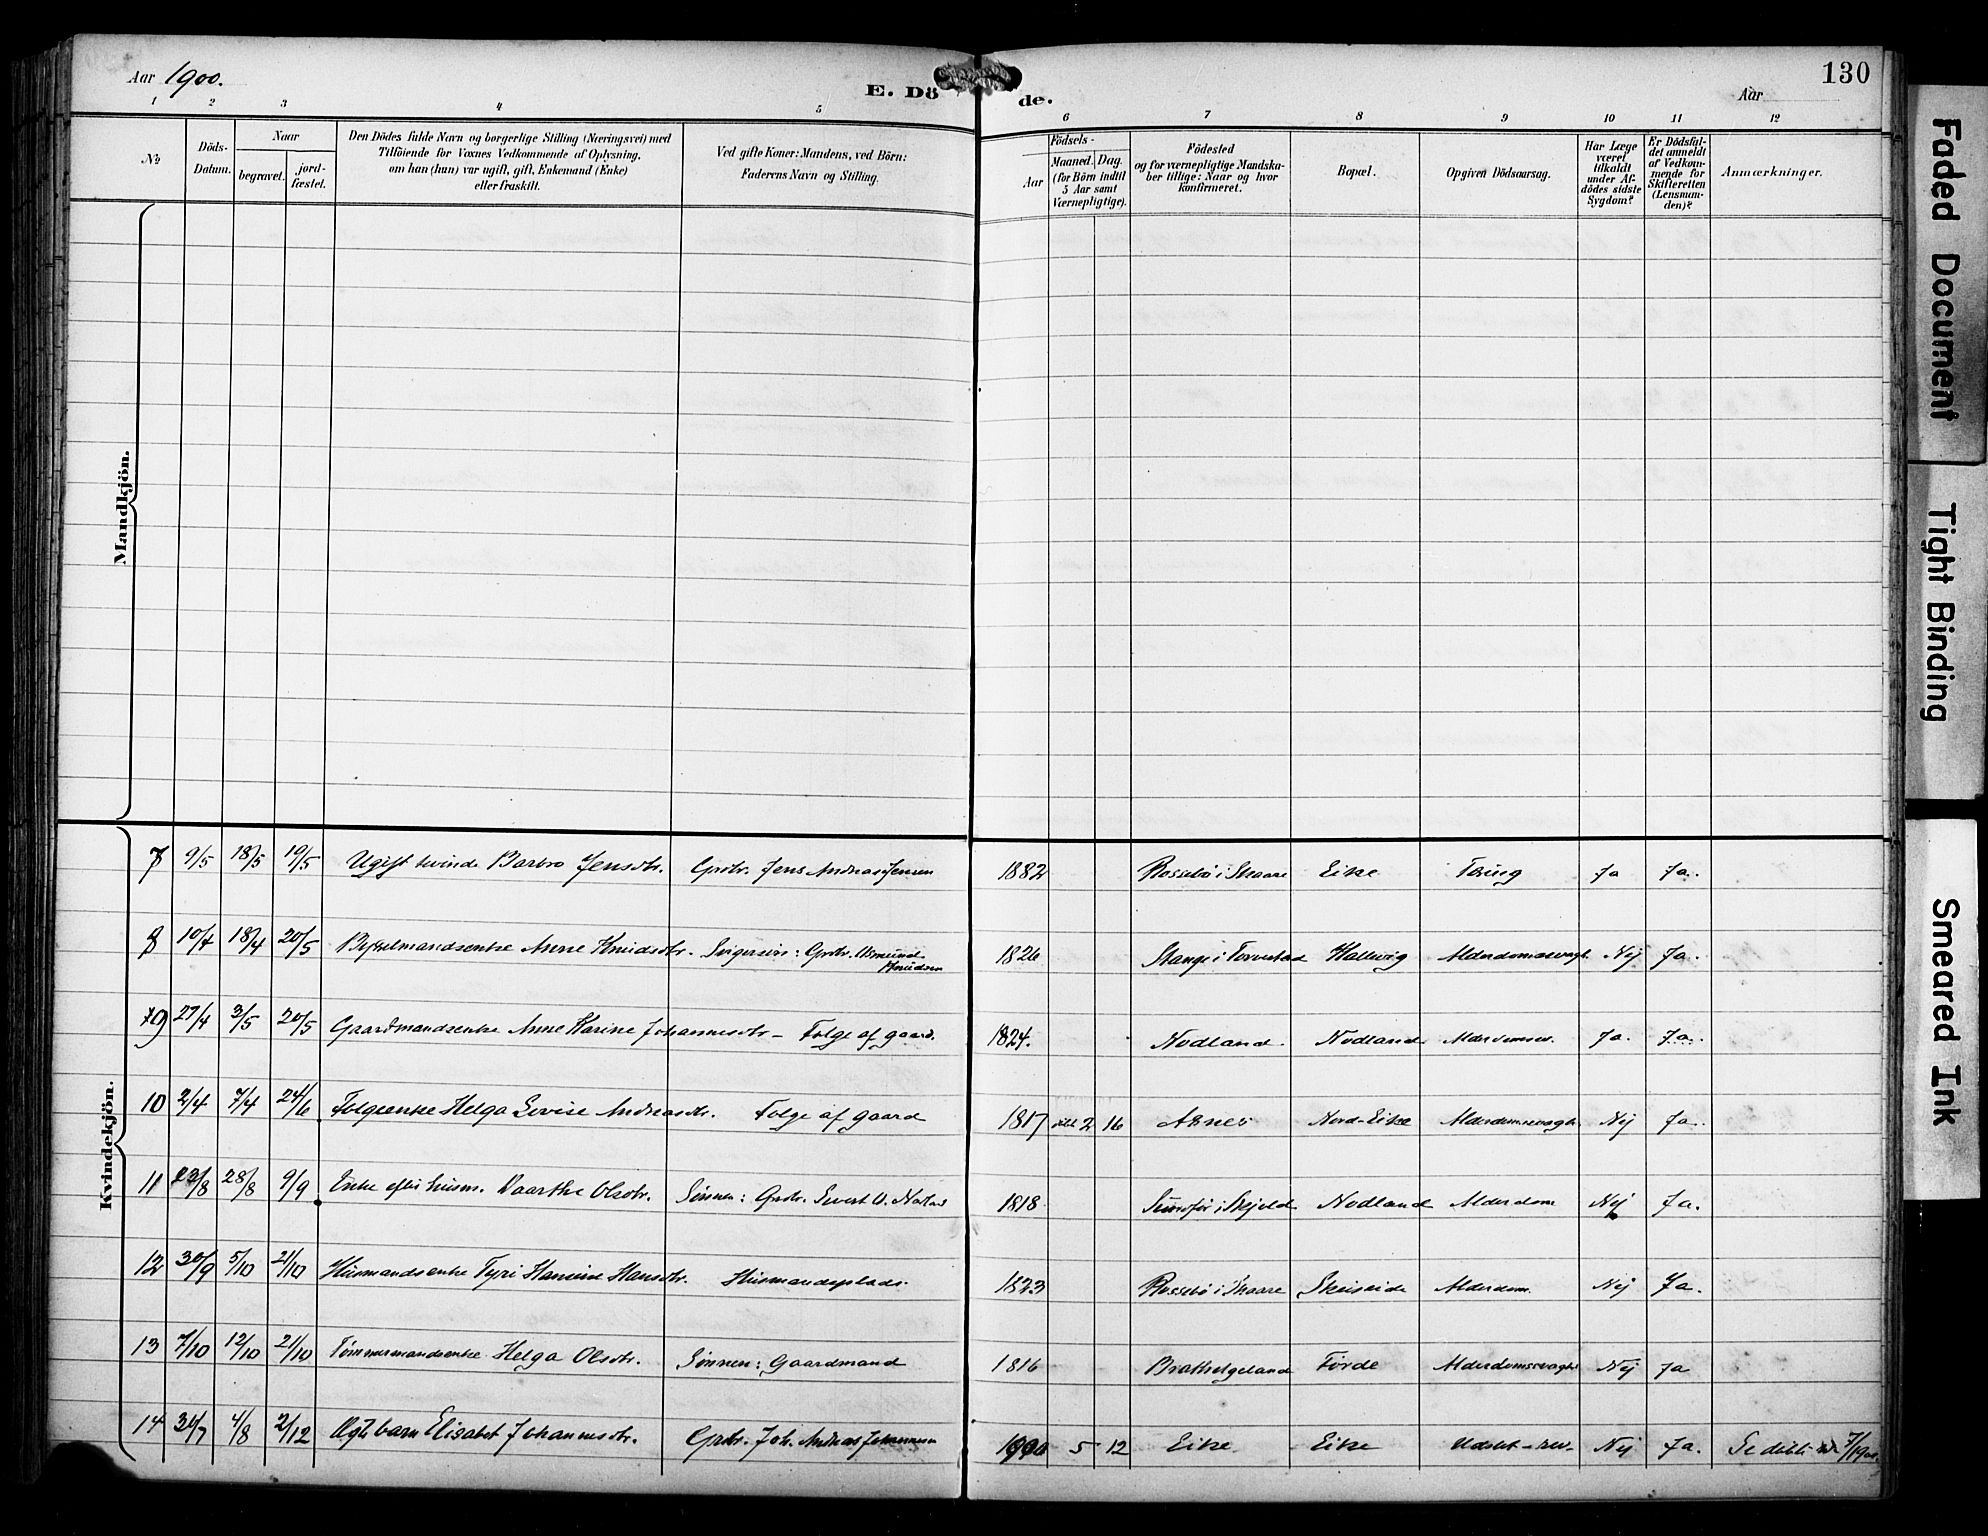 Aar 1900.
E. Dö de.
Aar
130
1 2 3 4 5 6 7 8 9 10 11 12
No
Döds-
Datum.
Naar
begravet.
jord-
fæstet.
Den Dödes fulde Navn og borgerlige Stilling (Næringsvei) med
Tilföiende for Voxnes Vedkommende af Oplysning,
om han (hun) var ugift, gift, Enkemand (Enke)
eller fraskilt.
Ved gifte Koner: Mandens, ved Börn:
Faderens Navn og Stilling.
Födsels-
Aar
Maaned. Dag.
(for Börn indtil
5 Aar samt
Værnepligtige).
Födested
og for værnepligtige Mandska-
ber tillige: Naar og hvor
konfirmeret.
Bopæl.
Opgiven Dödsaarsag.
Har Læge
været
tilkaldt
under Af-
dödes sidste
Sygdom?
Er Dödsfal-
det anmeldt
af Vedkom-
mende for
Skifteretten
(Lensman-
den)?
Anmærkninger.
Mandkjön.
Kvindekjön.
7 9/5 18/5 19/5 Ugift kvinde Barbro Jensdtr. Grdbr. Jens Andreas Jensen 1882 Rossebö i Skaare Eike Tæring Ja Ja.
8 10/4 18/4 20/5 Anne Knudsdtr. Grdbr. Asmund
Knudsen 1826 Stange i Torvestad Nej Ja.
9 27/4 3/5 20/5 Gaardmandsenke Anne Karine Johannesdtr – Folge af gaard. 1824. Nodland. Nodland Ja. Ja.
10 2/4 7/4 24/6 Folgeenke Helga Lovise Andreasdtr. Folge af gaard 1817 2 16 Aknes Nord-Eike Alderdomssvagh. Nej Ja.
11 23/8 28/8 9/9 Enke efter husm. Vaarthe Olsdtr. Sønnen: Grdbr. Sivert O. 1818 i Skjold Nodland Alderdom Nej Ja.
12 30/9 5/10 21/10 Husmandsenke Tyri Hansine Hansdtr. Husmandsplads. 1823 Rossebö i Skaare Skeiseide Alderdom. Nej Ja.
13 7/10 12/10 21/10 Tømmermandsenke Helga Olsdtr. Sønnen: Gaardmand 1816 Brathelgeland Førde Alderdomssvagh. Nej Ja
14 30/7 4/8 2/12 Ægte barn Elisabet Johannesdtr. Grdbr. Joh. Andreas Johannessen 1900 5 12 Eike. Eike Nej Ja. Se
Faded Document
Tight Binding
Smeared Ink